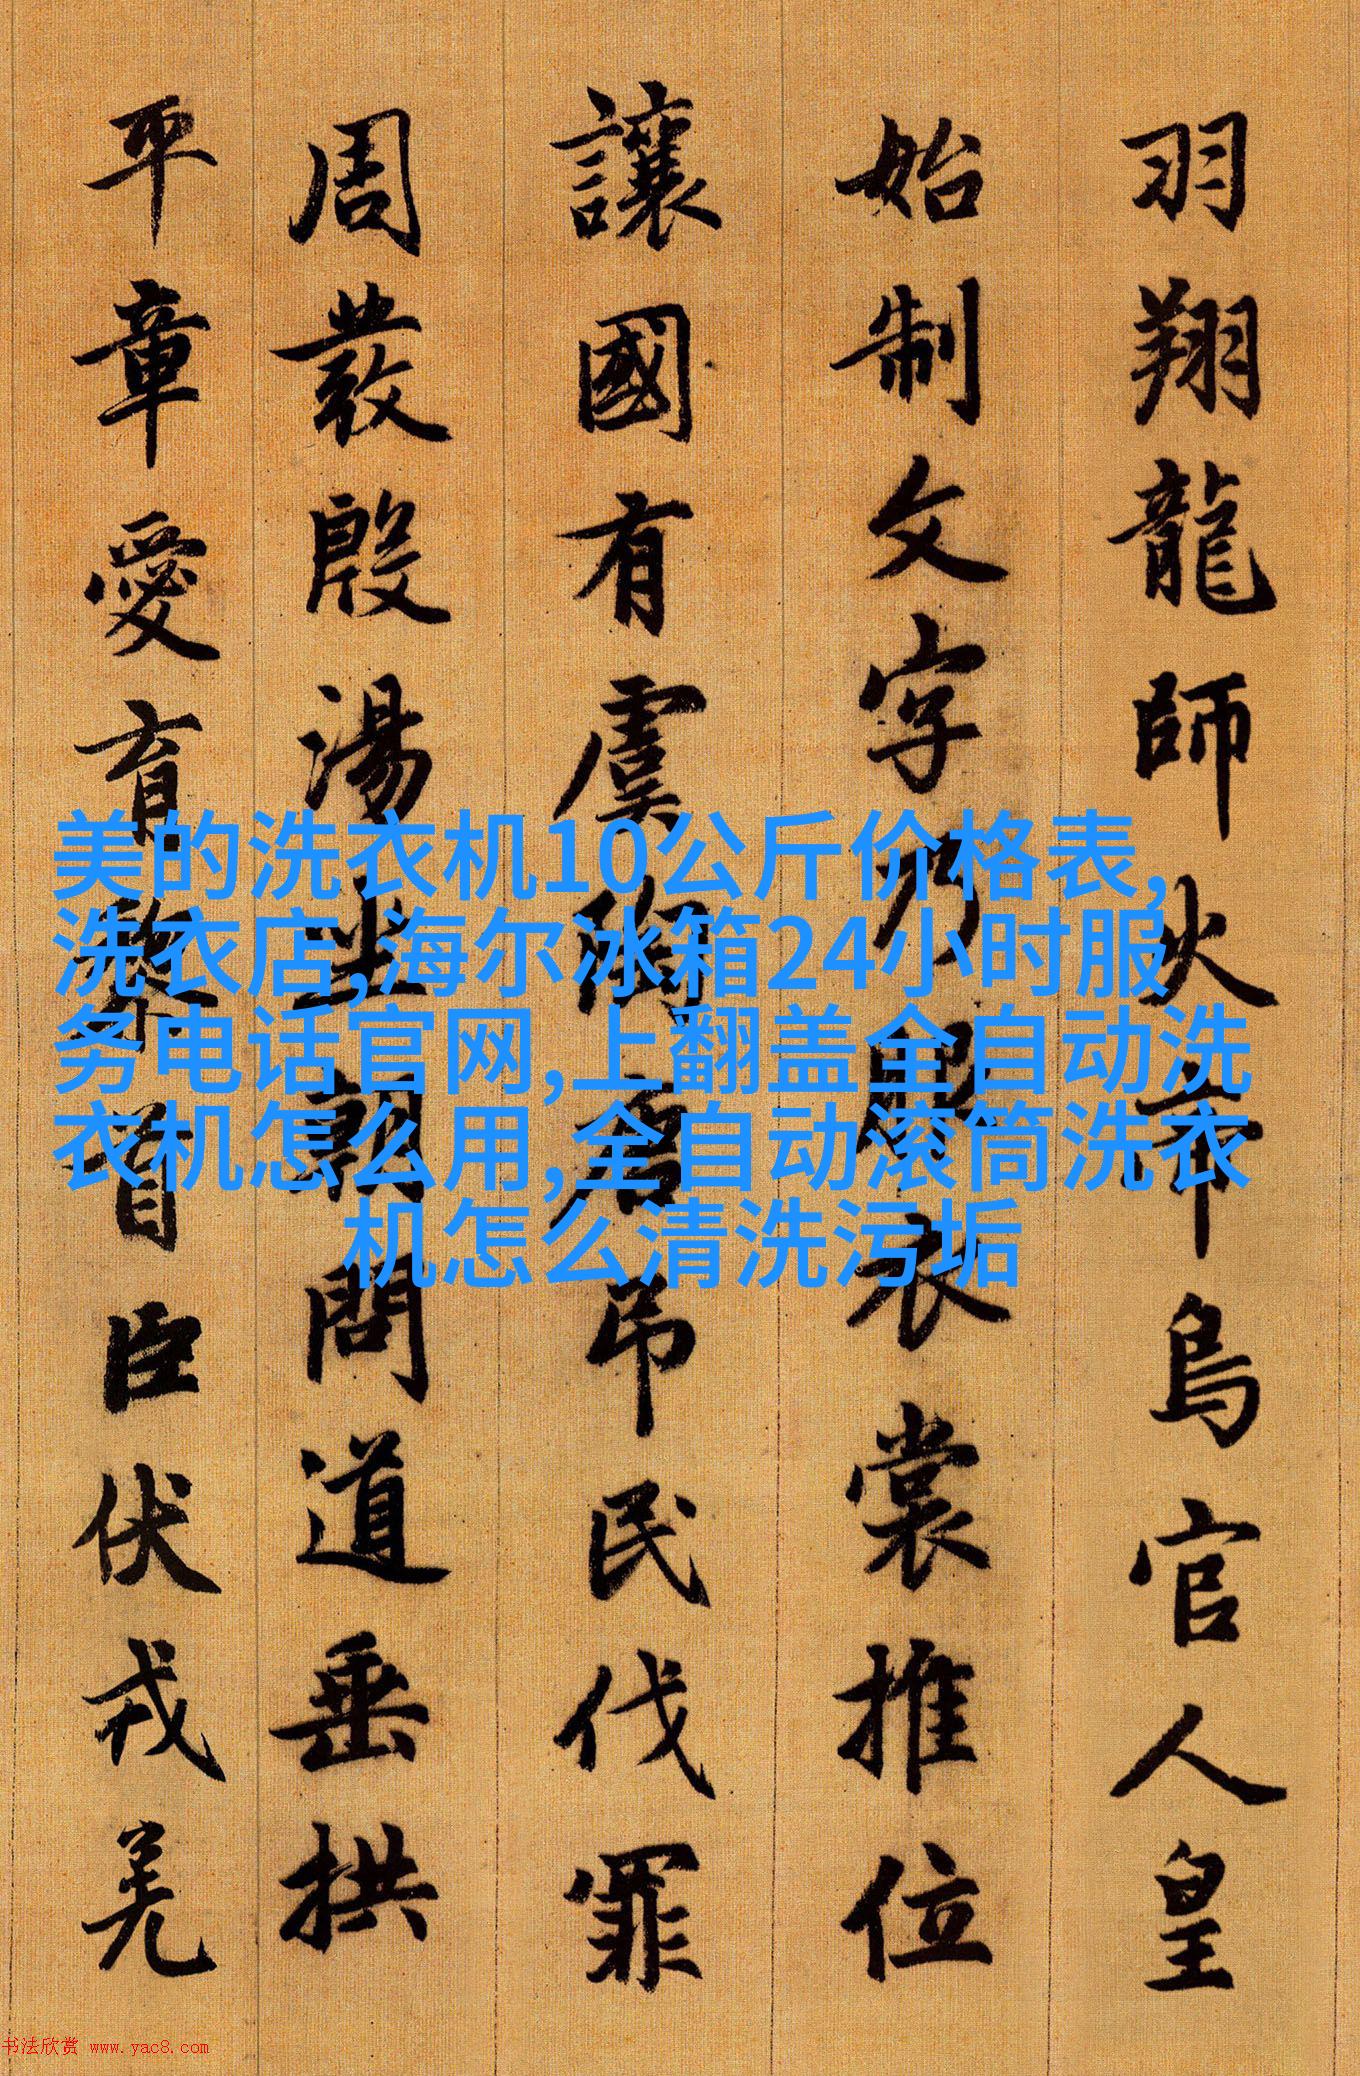 羽翔龍師火帝鳥官人皇
始制文字乃服衣裳推位
讓國有虞陶唐吊民伐罪
周發殷湯坐朝問道垂拱
平章愛育黎首臣伏戎羌
美的洗衣机10公斤价格表,
洗衣店,海尔冰箱24小时服
务电话官网,上翻盖全自动洗
衣机怎么用,全自动滚筒洗衣
机怎么清洗污垢
书法欣赏 www.yac8.com